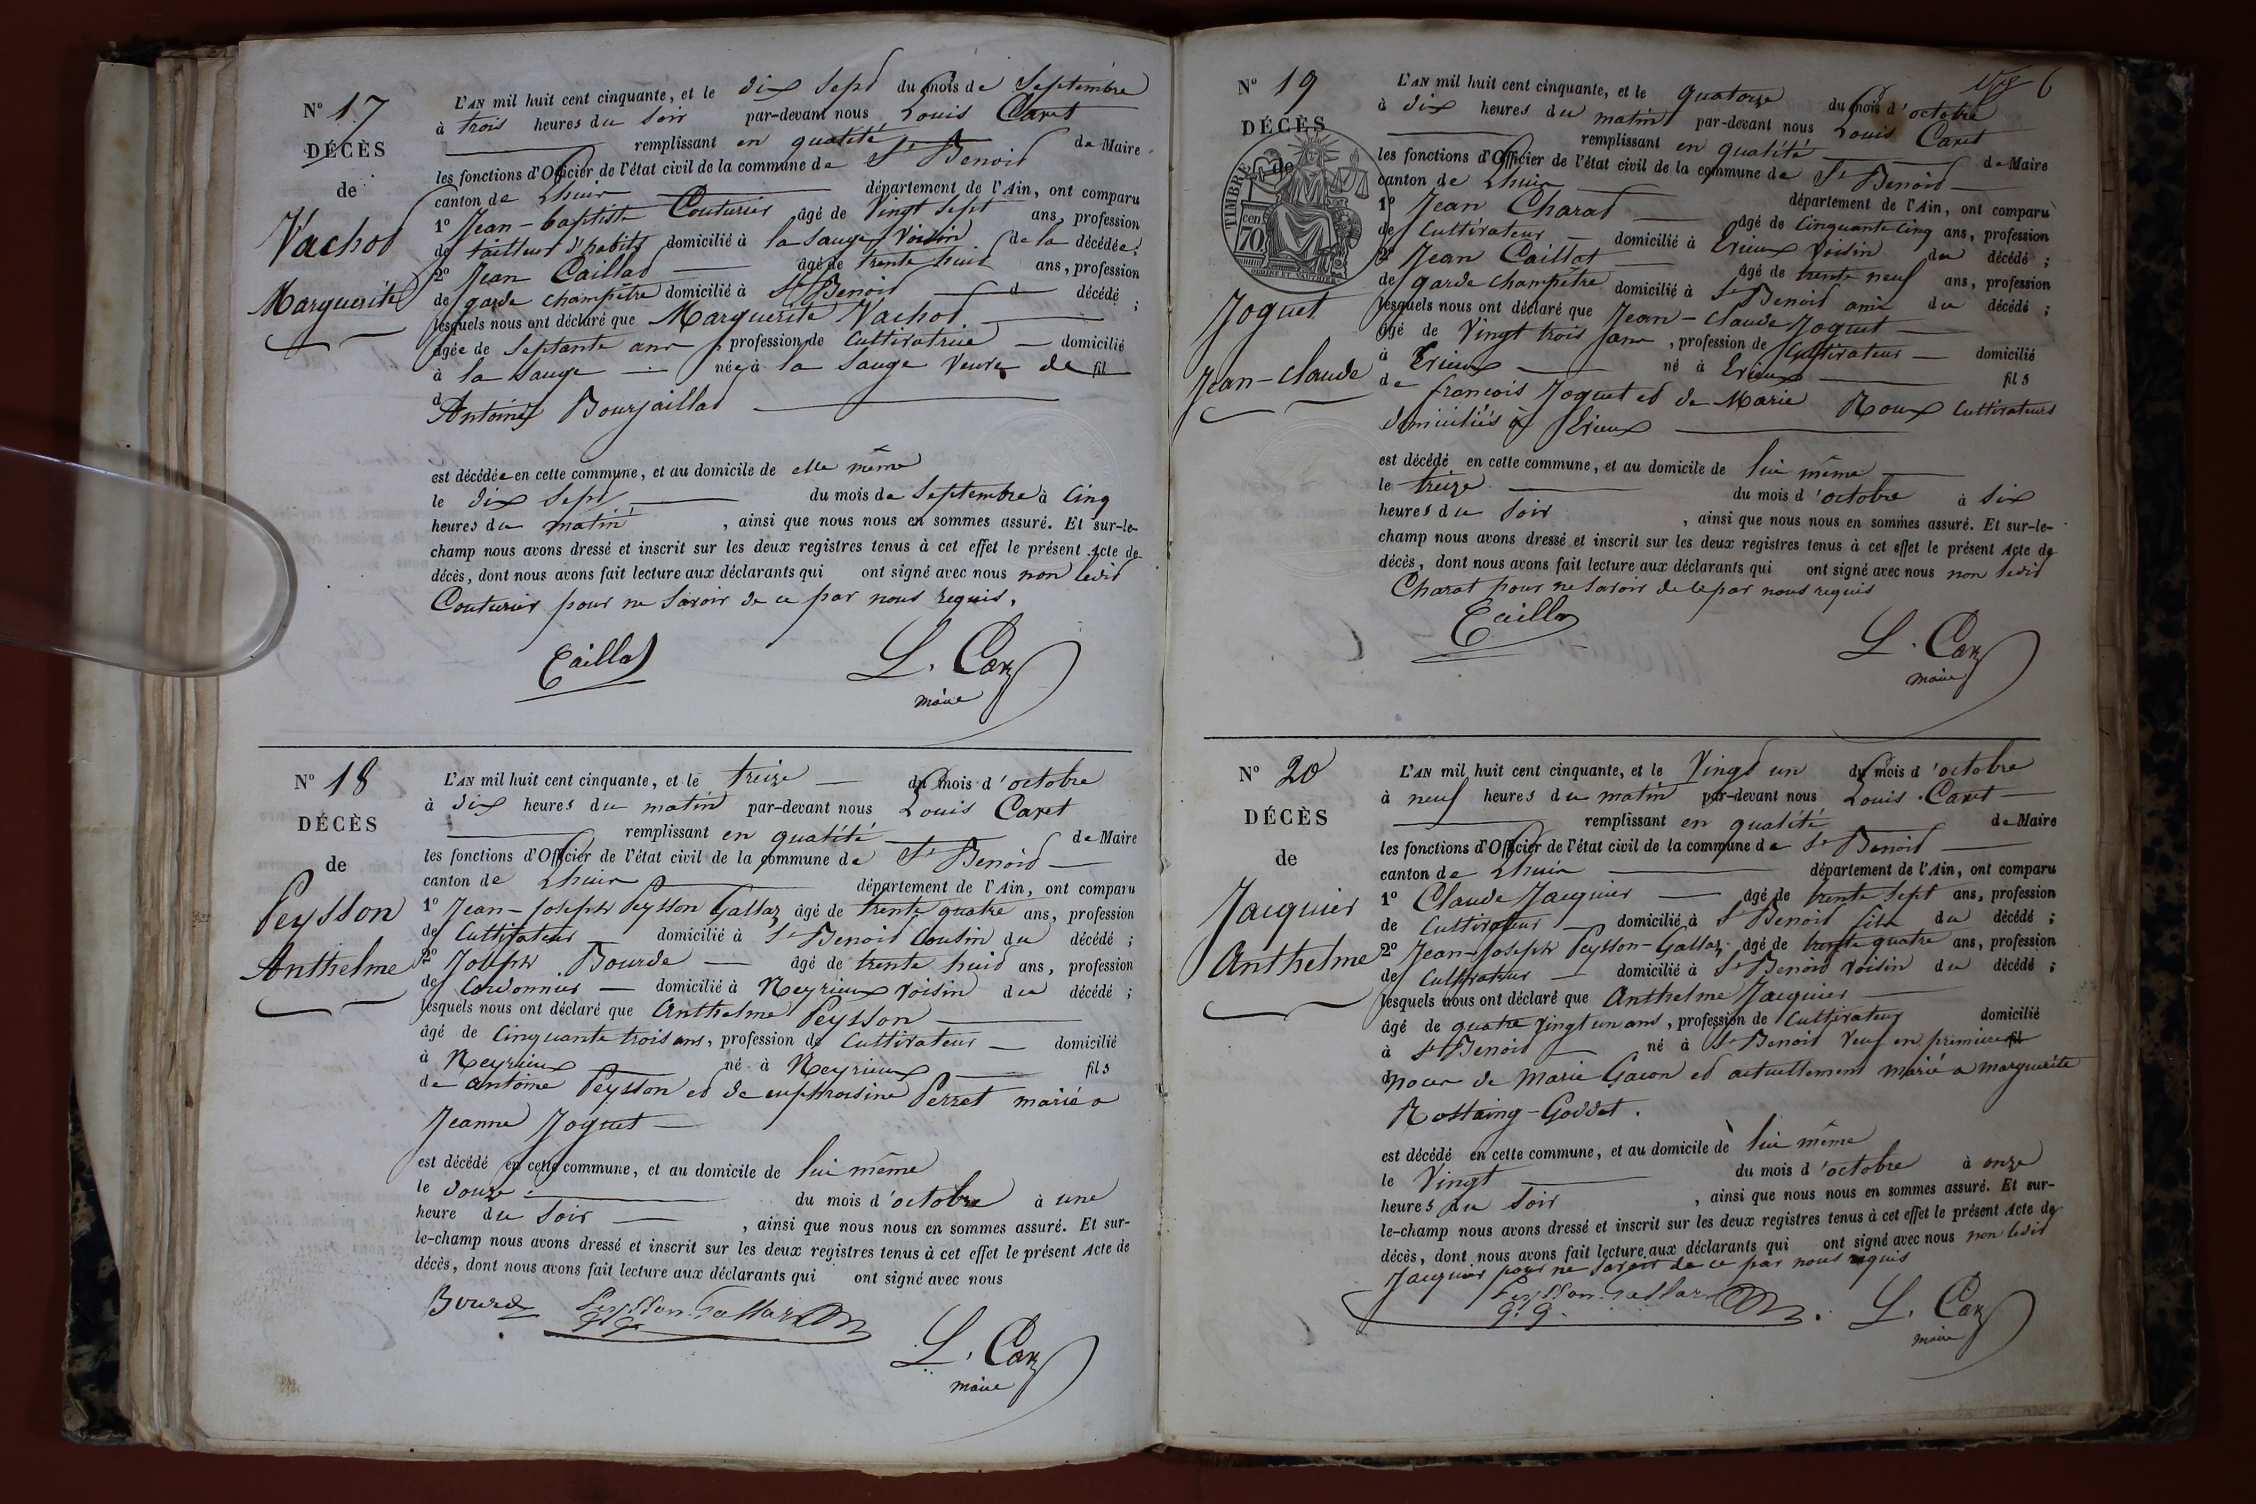 N° 17
DÉCÈS
de
Vachod
Marguerite
L'AN mil huit cent cinquante, et le dix sept du mois de Septembre
à trois heures du Soir par-devant nous Louis Caret
remplissant en qualité de Maire
les fonctions d'Officier de l'état civil de la commune de St Benoid
canton de Lhuis département de l'Ain, ont comparu
1° Jean-baptiste Couturier âgé de Vingt Sept ans, profession
de tailleur d'habits domicilié à la Sauge Voisin de la décédée ;
2° Jean Caillad âgé de trente huid ans, profession
de garde champêtre domicilié à St Benoid d décédé ;
lesquels nous ont déclaré que Marguerite Vachod
âgée de Septante ans, profession de Cultivatrice domicilié
à la Sauge née à la Sauge Veuve de fil
d'Antoine Bourjaillad
est décédée en cette commune, et au domicile de elle même
le dix Sept du mois de Septembre à Cinq
heures du matin, ainsi que nous nous en sommes assuré. Et sur-le-
champ nous avons dressé et inscrit sur les deux registres tenus à cet effet le présent Acte de
décès, dont nous avons fait lecture aux déclarants qui ont signé avec nous non ledid
Couturier pour ne Savoir de ce par nous requis.
Caillad L. Caret
maire
N° 18
DÉCÈS
de
Peysson
Anthelme
L'AN mil huit cent cinquante, et le treize du mois d'octobre
à dix heures du matin par-devant nous Louis Caret
remplissant en qualité de Maire
les fonctions d'Officier de l'état civil de la commune de St Benoid
canton de Lhuis département de l'Ain, ont comparu
1° Jean-Joseph Peysson Gallaz âgé de trente quatre ans, profession
de Cultivateur domicilié à St Benoid Cousin du décédé ;
2° Joseph Bourde âgé de trente huid ans, profession
de Cordonnier domicilié à Neyrieux Voisin du décédé ;
lesquels nous ont déclaré que Anthelme Peysson
âgé de Cinquante trois ans, profession de Cultivateur domicilié
à Neyrieux né à Neyrieux fils
de antoine Peysson ed de euphroisine Perret marié a
Jeanne Joguet
est décédé en cette commune, et au domicile de lui même
le douze du mois d'octobre à une
heure du Soir, ainsi que nous nous en sommes assuré. Et sur-
le-champ nous avons dressé et inscrit sur les deux registres tenus à cet effet le présent Acte de
décès, dont nous avons fait lecture aux déclarants qui ont signé avec nous
Bourde Peysson-Gallaz L. Caret
maire
N° 19
DÉCÈS
de
TIMBRE
70 cen
Joguet
Jean-Claude
6
L'AN mil huit cent cinquante, et le quatorze du mois d'octobre
à dix heures du matin par-devant nous Louis Caret
remplissant en qualité de Maire
les fonctions d'Officier de l'état civil de la commune de St Benoid
canton de Lhuis département de l'Ain, ont comparu
1° Jean Charat âgé de Cinquante Cinq ans, profession
de Cultivateur domicilié à Erieux Voisin du décédé ;
2° Jean Caillot âgé de trente neuf ans, profession
de garde champêtre domicilié à St Benoid ami du décédé ;
lesquels nous ont déclaré que Jean-Claude Joguet
âgé de Vingt trois ans, profession de Cultivateur domicilié
à Erieux né à Erieux fils
de françois Joguet ed de Marie Roux Cultivateurs
domiciliés à Erieux
est décédé en cette commune, et au domicile de lui même
le treize du mois d'octobre à Six
heures du Soir, ainsi que nous nous en sommes assuré. Et sur-le-
champ nous avons dressé et inscrit sur les deux registres tenus à cet effet le présent Acte de
décès, dont nous avons fait lecture aux déclarants qui ont signé avec nous non ledid
Charat pour ne Savoir de ce par nous requis
Caillod L. Caret
maire
N° 20
DÉCÈS
de
Jacquier
Anthelme
L'AN mil huit cent cinquante, et le Vingd un du mois d'octobre
à neuf heures du matin par-devant nous Louis Caret
remplissant en qualité de Maire
les fonctions d'Officier de l'état civil de la commune de St Benoid
canton de Lhuis département de l'Ain, ont comparu
1° Claude Jacquier âgé de trente Sept ans, profession
de Cultivateur domicilié à St Benoid fils du décédé ;
2° Jean-Joseph Peysson-Gallaz âgé de trente quatre ans, profession
de Cultivateur domicilié à St Benoid Voisin du décédé ;
lesquels nous ont déclaré que Anthelme Jacquier
âgé de quatre Vingt un ans, profession de Cultivateur domicilié
à St Benoid né à St Benoid Veuf en premiere fil
noces de Marie Gacon ed actuellement marié a marguerite
Rostaing-Goddet.
est décédé en cette commune, et au domicile de lui même
le Vingt du mois d'octobre à onze
heures du Soir, ainsi que nous nous en sommes assuré. Et sur-
le-champ nous avons dressé et inscrit sur les deux registres tenus à cet effet le présent Acte de
décès, dont nous avons fait lecture aux déclarants qui ont signé avec nous non ledid
Jacquier pour ne Savoir de ce par nous requis
Peysson-Gallaz L. Caret
maire